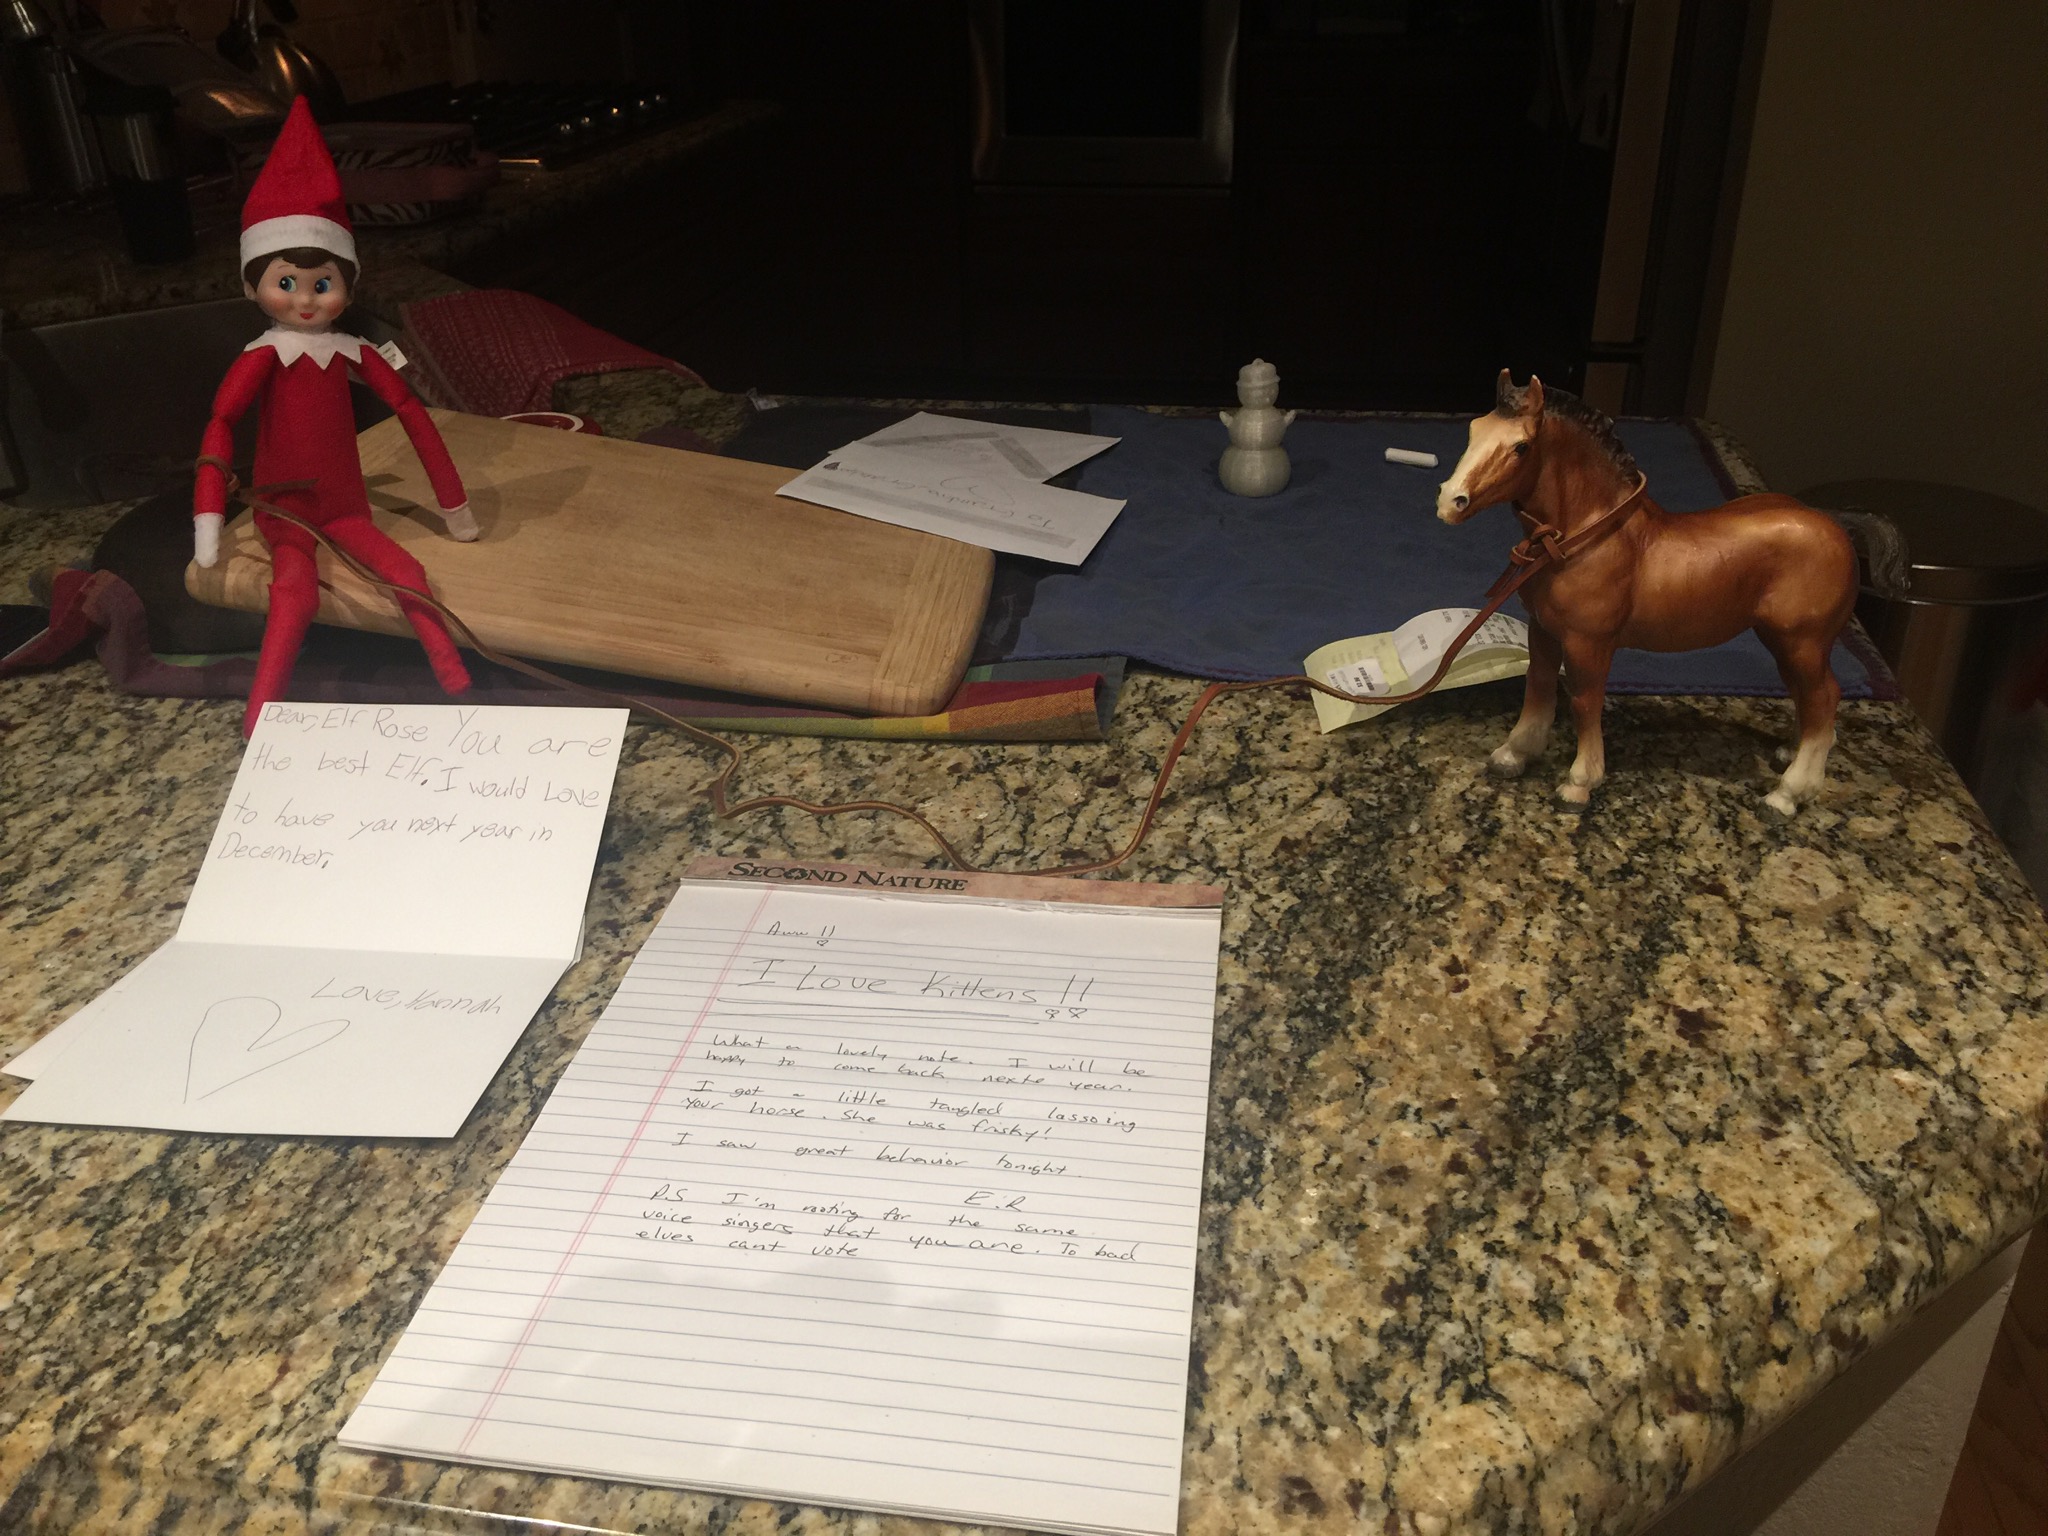 Dear, Elf Rose You are
the best Elf. I would Love
to have you next year in
December.
Love, Hannah
SECOND NATURE
Aww !!
I Love Kittens !!
What a lovely note. I will be
happy to come back nexte year.
I got a little tangled lassoing
your horse. She was frisky!
I saw great behavior tonight.
E.R
P.S I'm rooting for the same
voice singers that you are. To bad
elves cant vote
To